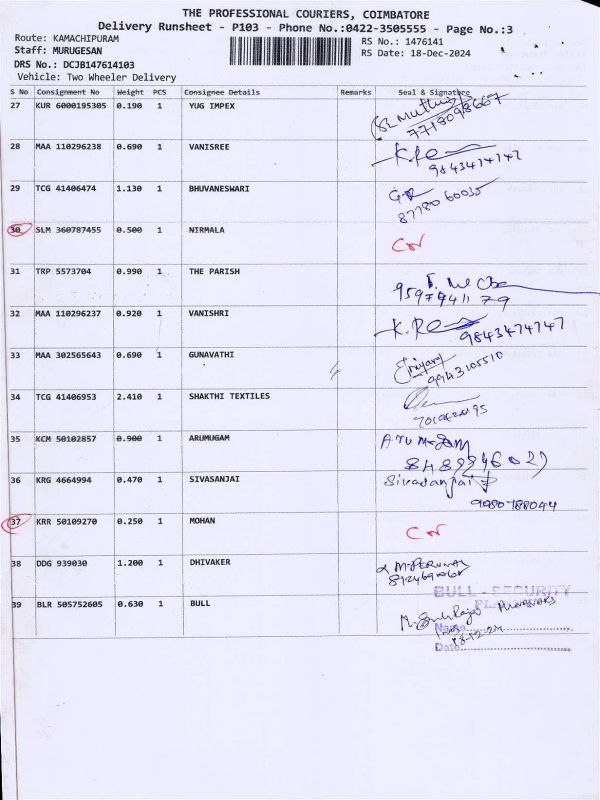 THE PROFESSIONAL COURIERS, COIMBATORE
Delivery Runsheet - P103 - Phone No.:0422-3505555 - Page No.:3
Route: KAMACHIPURAM RS No.: 1476141
Staff: MURUGESAN RS Date: 18-Dec-2024
DRS No.: DCJB147614103
Vehicle: Two Wheeler Delivery
S No Consignment No Weight PCS Consignee Details Remarks Seal & Signature
27 KUR 6000195305 0.190 1 YUG IMPEX
28 MAA 110296238 0.690 1 VANISREE
9843474747
29 TCG 41406474 1.130 1 BHUVANESWARI
8778060035
30 SLM 360787455 0.500 1 NIRMALA
31 TRP 5573704 0.990 1 THE PARISH
32 MAA 110296237 0.920 1 VANISHRI
9843474747
33 MAA 302565643 0.690 1 GUNAVATHI
9943105510
34 TCG 41406953 2.410 1 SHAKTHI TEXTILES
35 KCM 50102857 0.900 1 ARUMUGAM
36 KRG 4664994 0.470 1 SIVASANJAI
Sivasanjai
37 KRR 50109270 0.250 1 MOHAN
38 DDG 939030 1.200 1 DHIVAKER
39 BLR 505752605 0.630 1 BULL
BULL - SECURITY
Name
18-12-24
Date